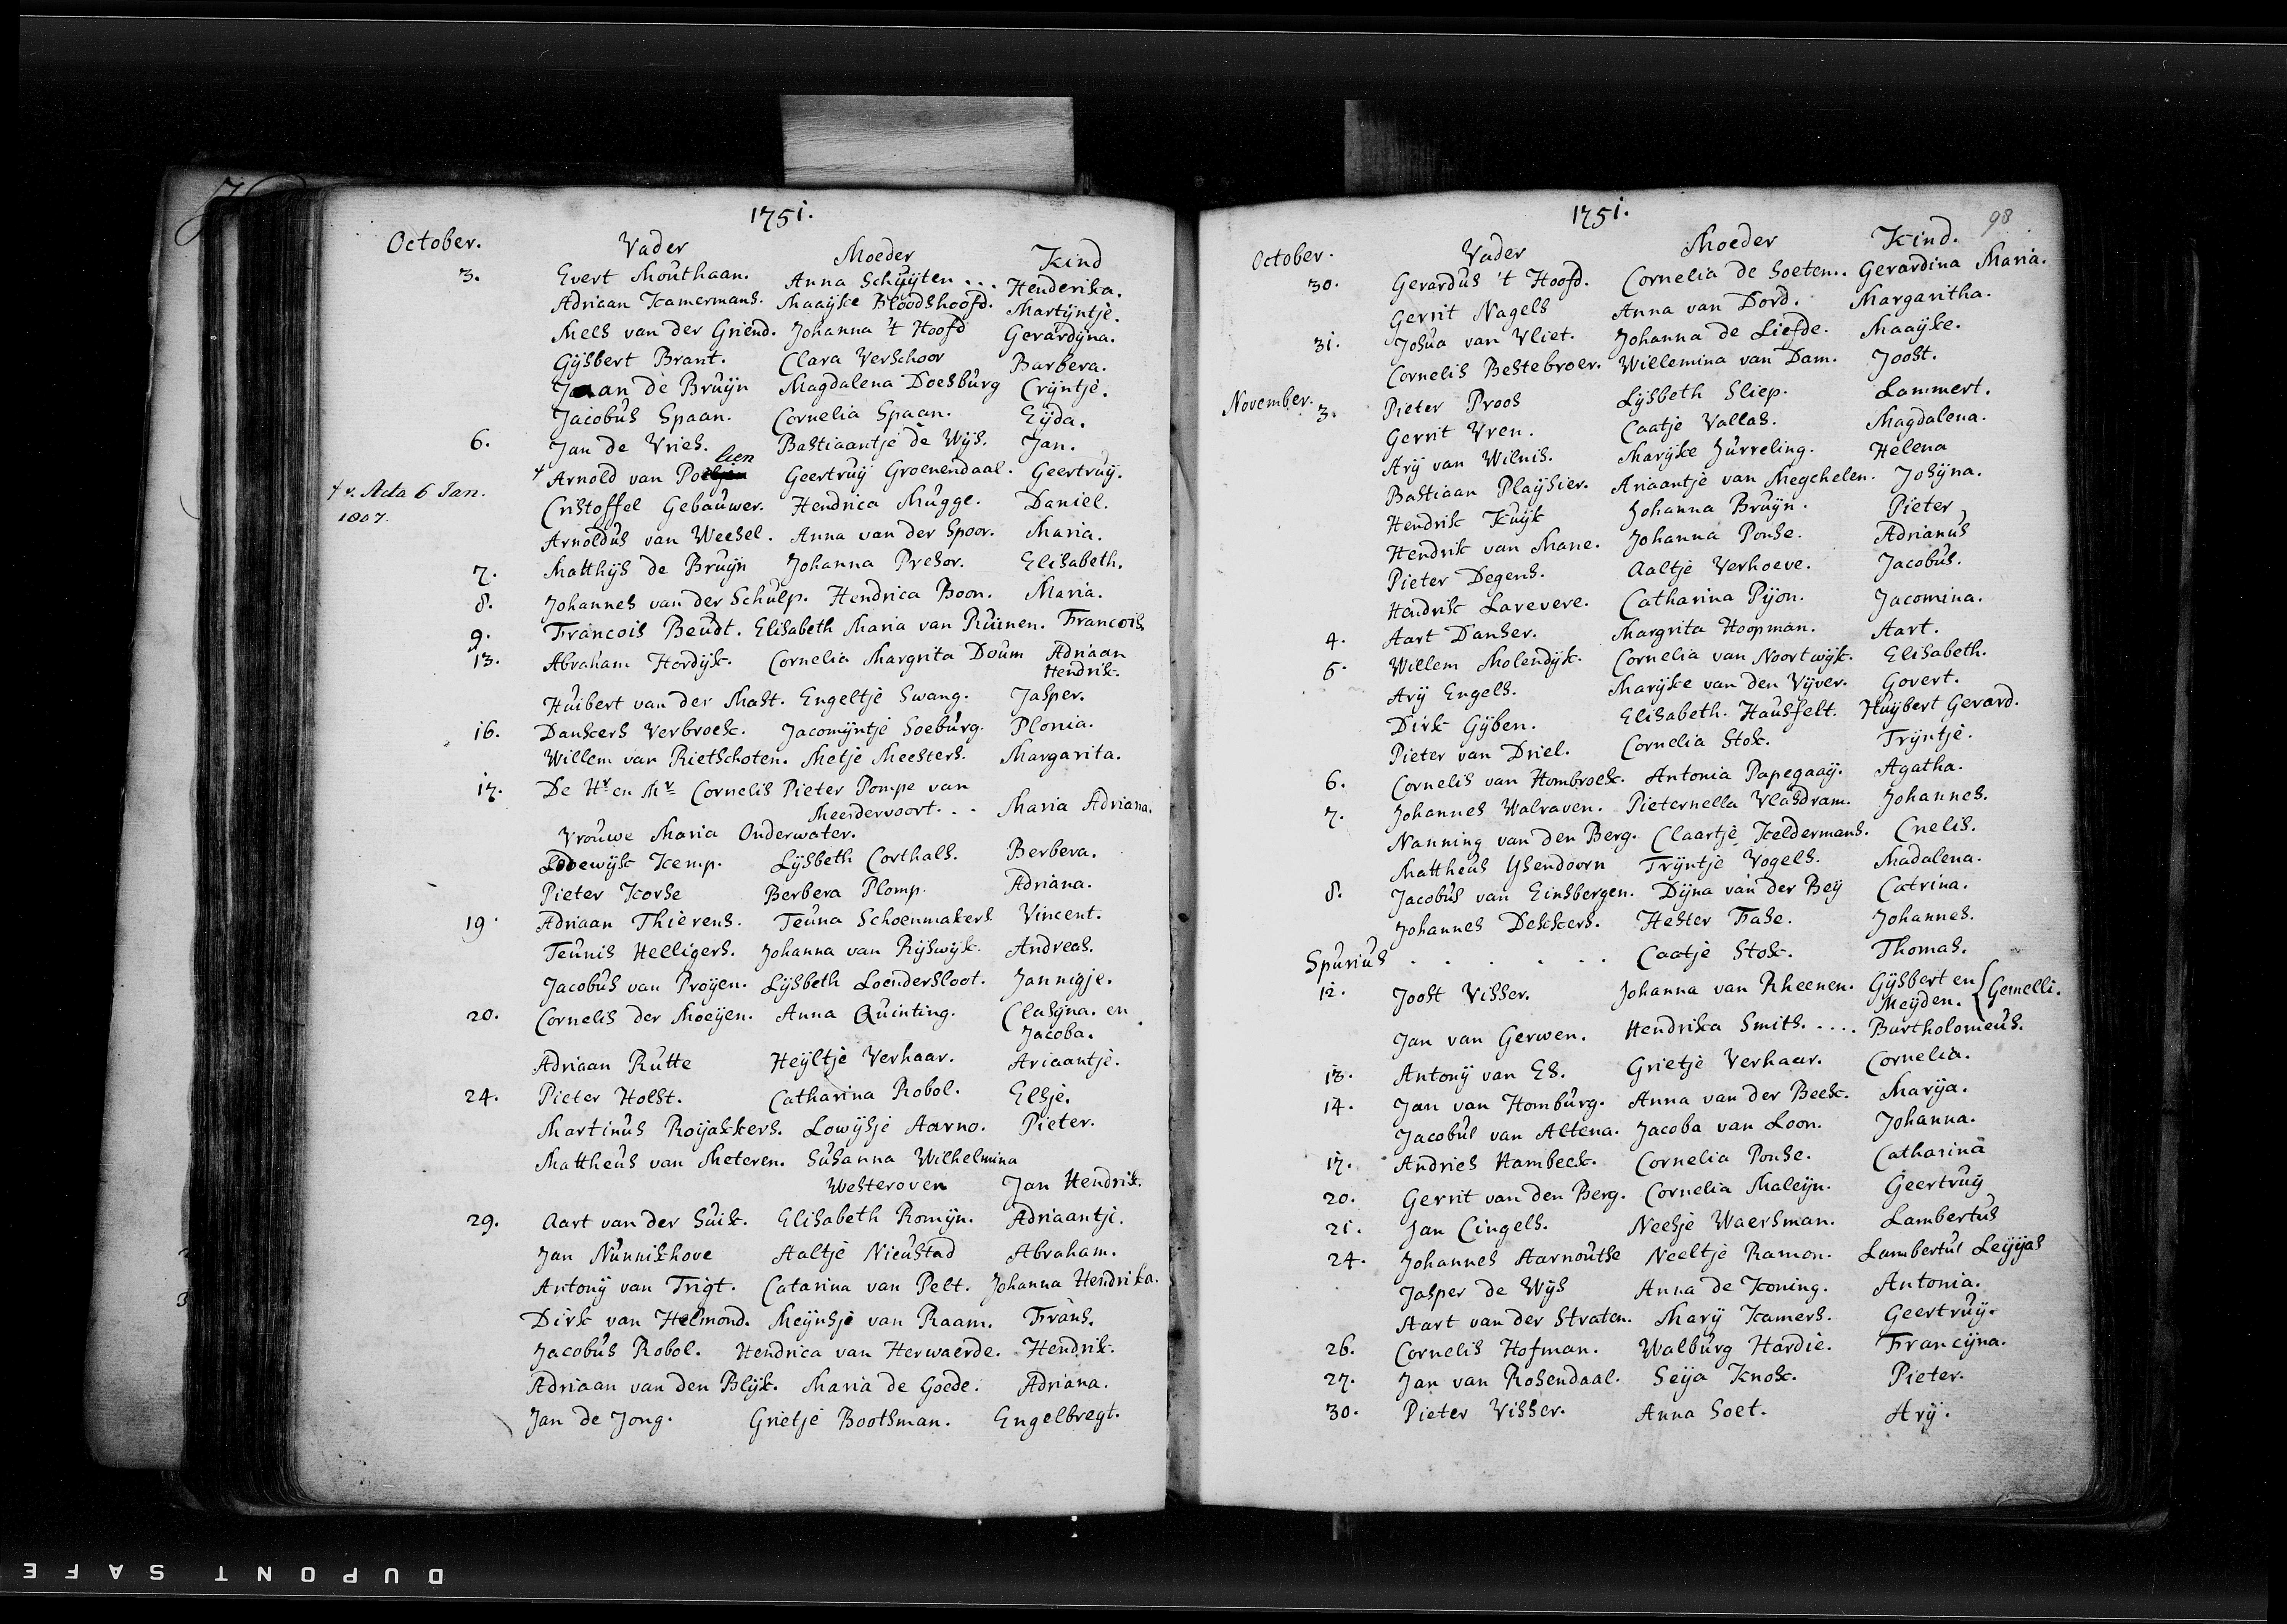 1751.
October.
Vader Moeder Kind
3. Evert Mouthaan. Anna Schuyten ... Henderika.
Adriaan Kamermans. Maaijke Bloodshoofd. Martijntje.
Mels van der Griend. Johanna 't Hoofd Gerardijna.
Gijsbert Brant. Clara Verschoor Barbera.
Jaan de Bruijn Magdalena Doesburg Crijntje.
Jacobus Spaan. Cornelia Spaan. Eijda.
6. Jan de Vries. Bastiaantje de Wijs. Jan.
lien
+ Arnold van Po Geertruij Groenendaal. Geertruij.
+ v. Acta 6 Jan.
1807.
Cristoffel Gebauwer. Hendrica Mugge. Daniel.
Arnoldus van Weesel. Anna van der Spoor. Maria.
7. Matthijs de Bruijn Johanna Presor. Elisabeth.
8. Johannes van der Schulp. Hendrica Boon. Maria.
9. Francois Beudt. Elisabeth Maria van Ruinen. Francois.
13. Abraham Hordijk. Cornelia Margrita Doum Adriaan
Hendrik.
Huibert van der Mast. Engeltje Swang. Jasper.
16. Dankers Verbroek. Jacomijntje Soeburg. Plonia.
Willem van Rietschoten. Metje Meesters. Margarita.
17. De Hr en Mr Cornelis Pieter Pompe van
Meerdervoort. .. Maria Adriana.
Vrouwe Maria Onderwater.
Lodewijk Kemp. Lijsbeth Corthals. Berbera.
Pieter Korse Berbera Plomp. Adriana.
19. Adriaan Thierens. Teuna Schoenmakers Vincent.
Teunis Helligers. Johanna van Rijswijk. Andreas.
Jacobus van Proijen. Lijsbeth Loendersloot. Jannigje.
20. Cornelis der Moeijen. Anna Quinting. Clasijna. en
Jacoba.
Adriaan Rutte Heijltje Verhaar. Ariaantje.
24. Pieter Holst. Catharina Robol. Elsje.
Martinus Roijakkers. Lowijsje Aarno. Pieter.
Mattheus van Meteren. Susanna Wilhelmina
Westeroven Jan Hendrik.
29. Aart van der Suik. Elisabeth Romijn. Adriaantje.
Jan Nunnikhove Aaltje Nieustad Abraham.
Antonij van Trigt. Catarina van Pelt. Johanna Hendrika.
Dirk van Helmond. Meijnsje van Raam. Frans.
Jacobus Robol. Hendrica van Herwaerde. Hendrik.
Adriaan van den Blijk. Maria de Goede. Adriana.
Jan de Jong. Grietje Bootsman. Engelbregt.
1751.
98
October. Vader Moeder Kind.
30. Gerardus 't Hoofd. Cornelia de Soeten.. Gerardina Maria.
Gerrit Nagels Anna van Dord. Margaritha.
31. Josua van Vliet. Johanna de Liefde. Maaijke.
Cornelis Bestebroer. Willemina van Dam. Joost.
November.
3. Pieter Proos Lijsbeth Sliep. Lammert.
Gerrit Vren. Caatje Vallas. Magdalena.
Arij van Wilnis. Marijke Jurreling. Helena
Bastiaan Plaijsier. Ariaantje van Megchelen. Josijna.
Hendrik Kuijk Johanna Bruijn. Pieter
Hendrik van Mane. Johanna Ponse. Adrianus
Pieter Degens. Aaltje Verhoeve. Jacobus.
Hendrik Larevere. Catharina Pijon. Jacomina.
4. Aart Danser. Margrita Hoopman. Aart.
5. Willem Molendijk. Cornelia van Noortwijk. Elisabeth.
Arij Engels. Marijke van den Vijver. Govert.
Dirk Gijben. Elisabeth. Hausfelt. Huijbert Gerard.
Pieter van Driel. Cornelia Stok. Trijntje.
6. Cornelis van Hombroek. Antonia Papegaaij. Agatha.
7. Johannes Walraven. Pieternella Vlasdram. Johannes.
Nanning van den Berg. Claartje Keldermans. Cnelis.
Mattheus Ysendoorn Trijntje Vogels. Madalena.
8. Jacobus van Einsbergen. Dijna van der Beij Catrina.
Johannes Dekkers. Hester Fase. Johannes.
Spurius . . . . . . Caatje Stok. Thomas.
12. Joost Visser. Johanna van Rheenen. Gijsbert en
Meijden. { Gemelli.
Jan van Gerwen. Hendrika Smits. .... Bartholomeus.
13. Antonij van Es. Grietje Verhaar. Cornelia.
14. Jan van Homburg. Anna van der Beek. Marija.
Jacobus van Altena. Jacoba van Loon. Johanna.
17. Andries Hambeek. Cornelia Ponse. Catharina
20. Gerrit van den Berg. Cornelia Maleijn. Geertruij
21. Jan Cingels. Neesje Waersman. Lambertus
24. Johannes Aarnoutse Neeltje Ramon. Lambertus Leijijas
Jasper de Wijs Anna de Koning. Antonia.
Aart van der Straten. Marij Kamers. Geertruij.
26. Cornelis Hofman. Walburg Hardie. Francijna.
27. Jan van Rosendaal. Seija Knok. Pieter.
30. Pieter Visser. Anna Soet. Arij.
DUPONT SAFE